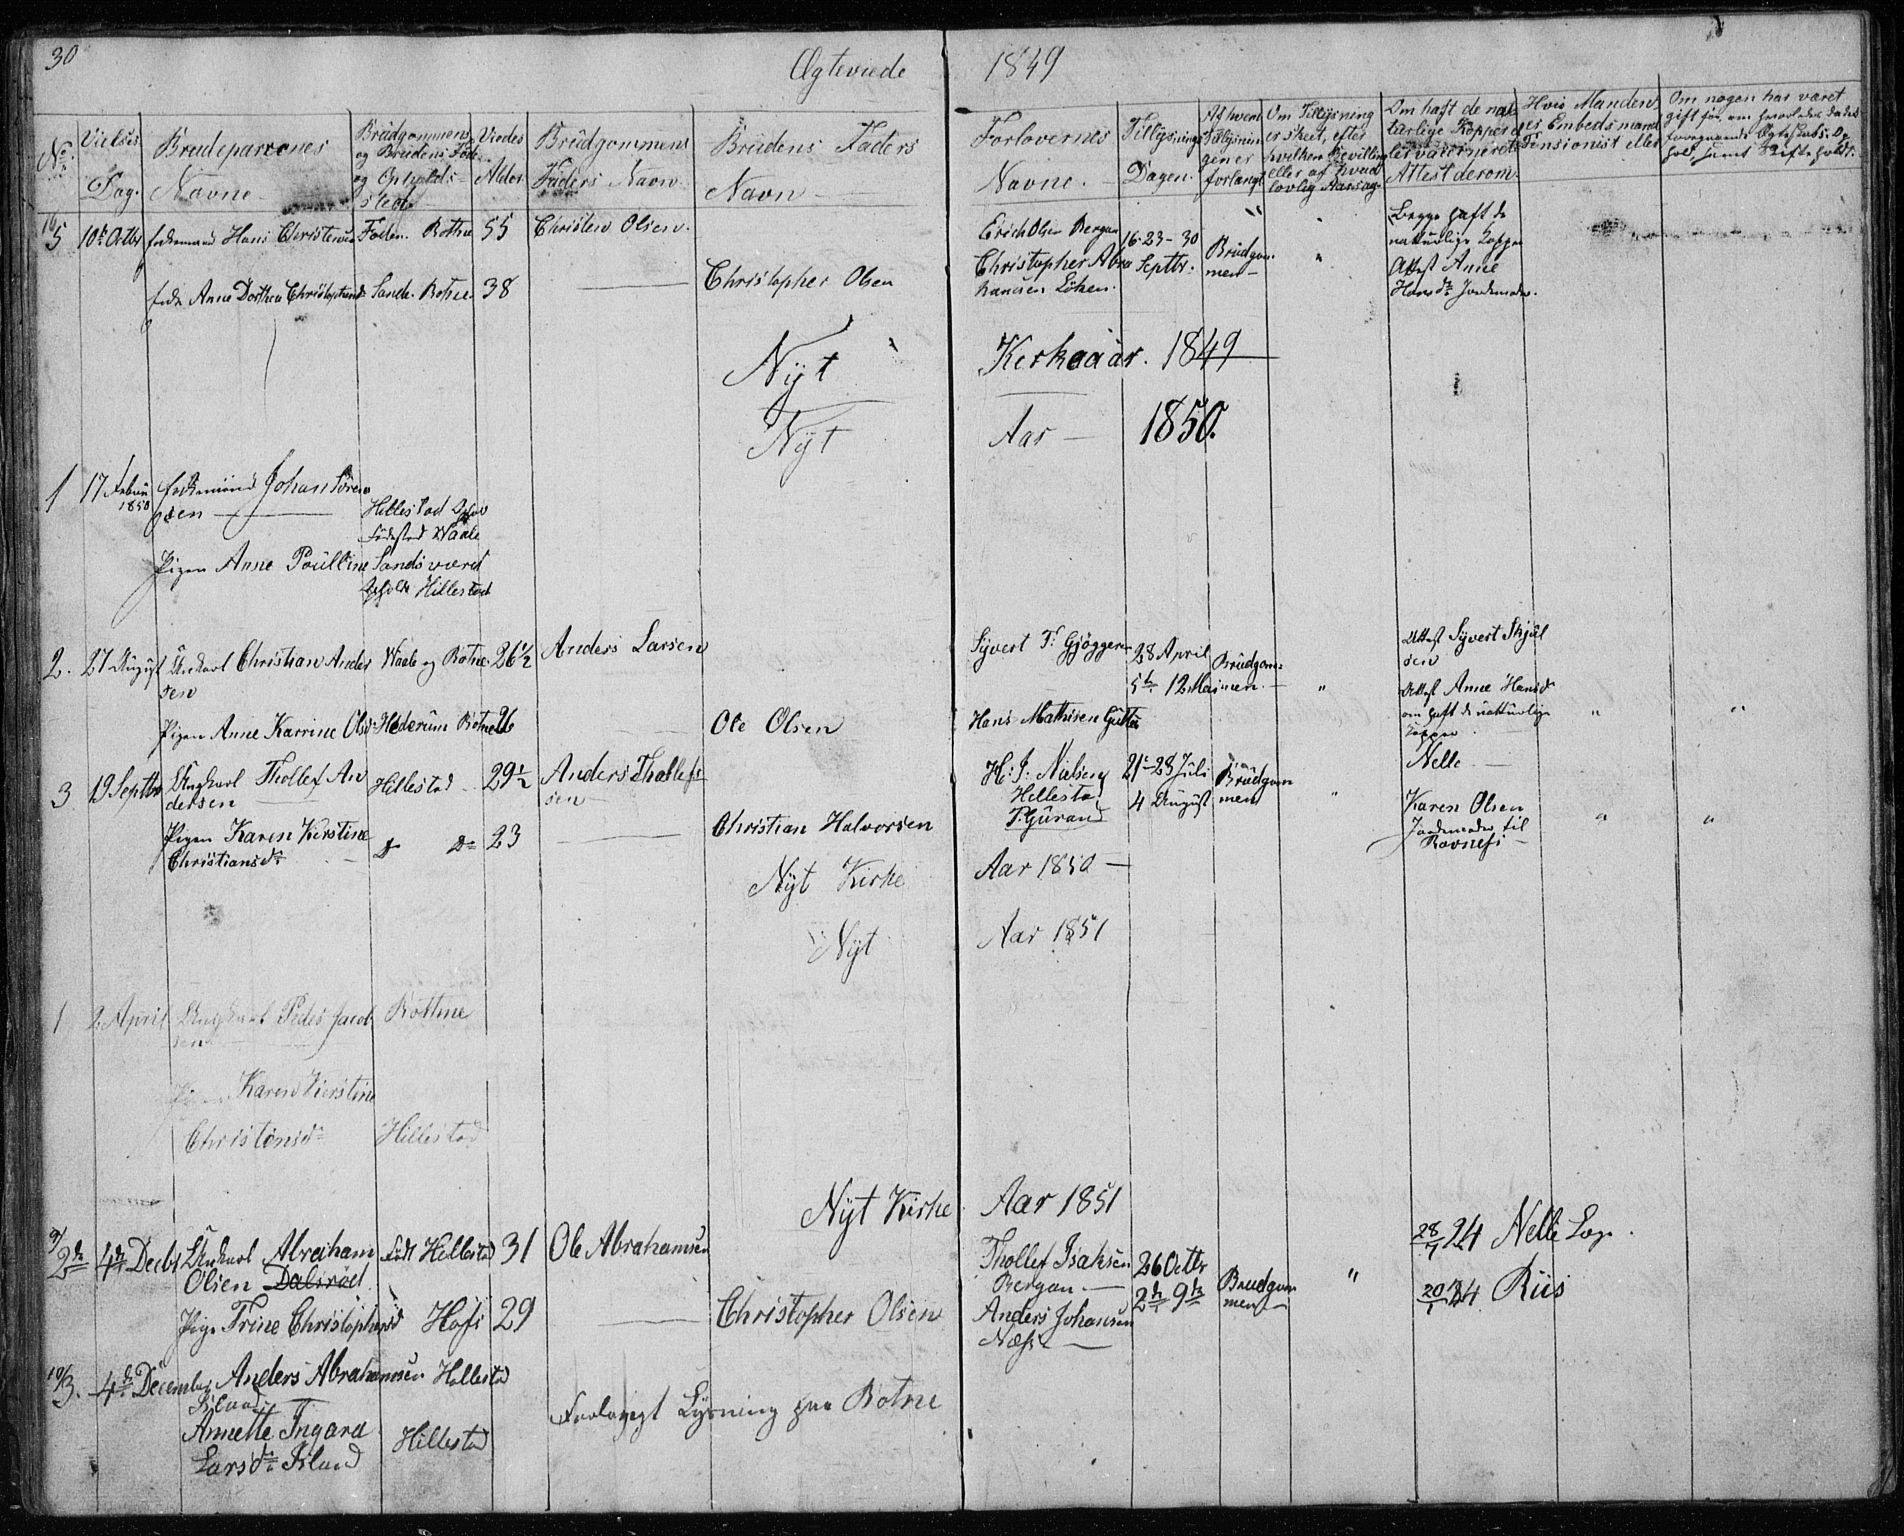 30
Ægteviede 1849
No. Vielses Dag. Brudeparrenes Navne Brudgommens og Brudens Føde og Opholds- sted Viedes Alder Brudgommens Faders Navn Brudens Faders Navn
Forlovernes Navne. Tillysnings Dagen. Af hvem Tillysningen er forlangt Om Tillysning er skeet, efter hvilken Bevilling eller af hvad lovlig Aarsag Om haft de naturlige Kopper eller vaccineret Attest derom. Hvis Manden er Embedsmand Pensionist eller Om nogen har været gift før
5 10de Octbr Hans Christensen Foden Botne 55 Christen Olsen.
Erich Olsen Bergan 16-23-30 Septbr: Brudgommen Begge haft de naturlige Kopper
Anne Dorthea Christophersd Sande Botne 38 Christopher Olsen
Christopher Abrahamsen Löken. Attest Anne Hansdr Jordemoder.
Nyt Kerkeaar. 1849
Nyt Aar 1850.
1 17 Februar 1850 Johan Sörensen
Hillestad
Födested Waale
Pigen Anne Poulline Sandsværd
Hillestad
2. 27 August Ungkarl Christian Andersen Waale og Botne 26½ Anders Larsen
Syvert T: Gjøggeren 28 April 5te 12 Mai Brudgommen Attest Syvert Skjulsen
Pigen Anne Karrine Olsdr Hederum Botne 26 Ole Olsen
Hans Mathisen Gutten Attest Anne Hansdr om haft de naturlige Kopper
3 19 Septbr Ungkarl Thollef Andersen Hillestad 29½ Anders Thollefsen
H: J: Nielsen Hillestad 21-28 Juli 4 August Brudgommen Nelle
T: Gurand
Pigen Karen Kirstine Christiansdr do do 23 Christian Halvorsen
Karen Olsen Jordemoder til Rovnefs
Nyt Kirke Aar 1850
Nyt Aar 1851
1 2 April Ungkarl Peder Jacobsen Bottne
Pigen Karen Kierstine
Christensdr Hillestad
Nyt Kirke Aar 1851
9/2de 4de Decbr Ungkarl Abraham Olsen Dalsröd Födt Hillestad 31 Ole Abrahamsen
Thollef Isaksen Bergan 26 Octbr 2de 9de Brudgommen 28/7 24 Nelle
Pige Trine Christophersd Hofs 29 Christopher Olsen
Anders Johansen Næss 20/1 24 Riis
10/3. 4de December Anders Abrahamsen Hillestad
Island
Annette Ingard Hillestad
Larsdr Island
Lysning paa Botne